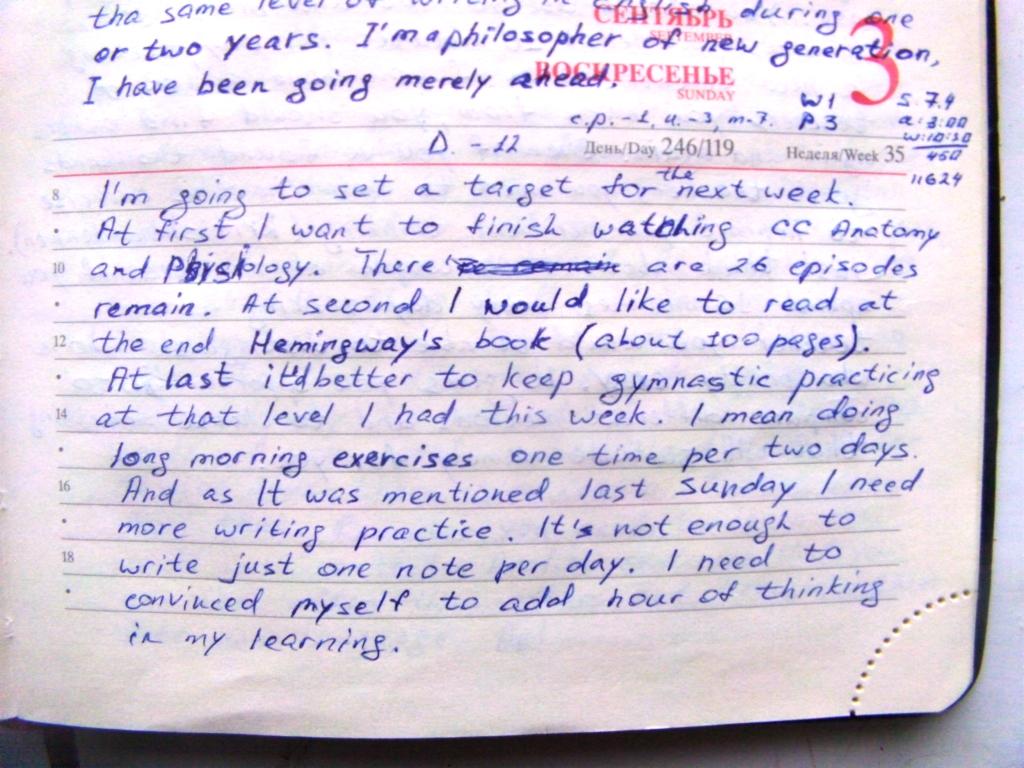 the same level of writing in English during one
СЕНТЯБРЬ
SEPTEMBER
or two years. I'm a philosopher of new generation,
3
I have been going merely ahead.
ВОСКРЕСЕНЬЕ
SUNDAY
W1 s. 7.4
c.p.-1, u.-3, m-7. P.3 a: 3:00
w:10:30
D. - 12 День/Day 246/119 Неделя/Week 35 460
11624
8 I'm going to set a target for the next week.
At first I want to finish watching CC Anatomy
10 and Physiology. There are 26 episodes
remain. At second I would like to read at
12 the end Hemingway's book (about 100 pages).
At last it'd better to keep gymnastic practicing
14 at that level I had this week. I mean doing
long morning exercises one time per two days.
16 And as It was mentioned last Sunday I need
more writing practice. It's not enough to
18 write just one note per day. I need to
convinced myself to add hour of thinking
in my learning.